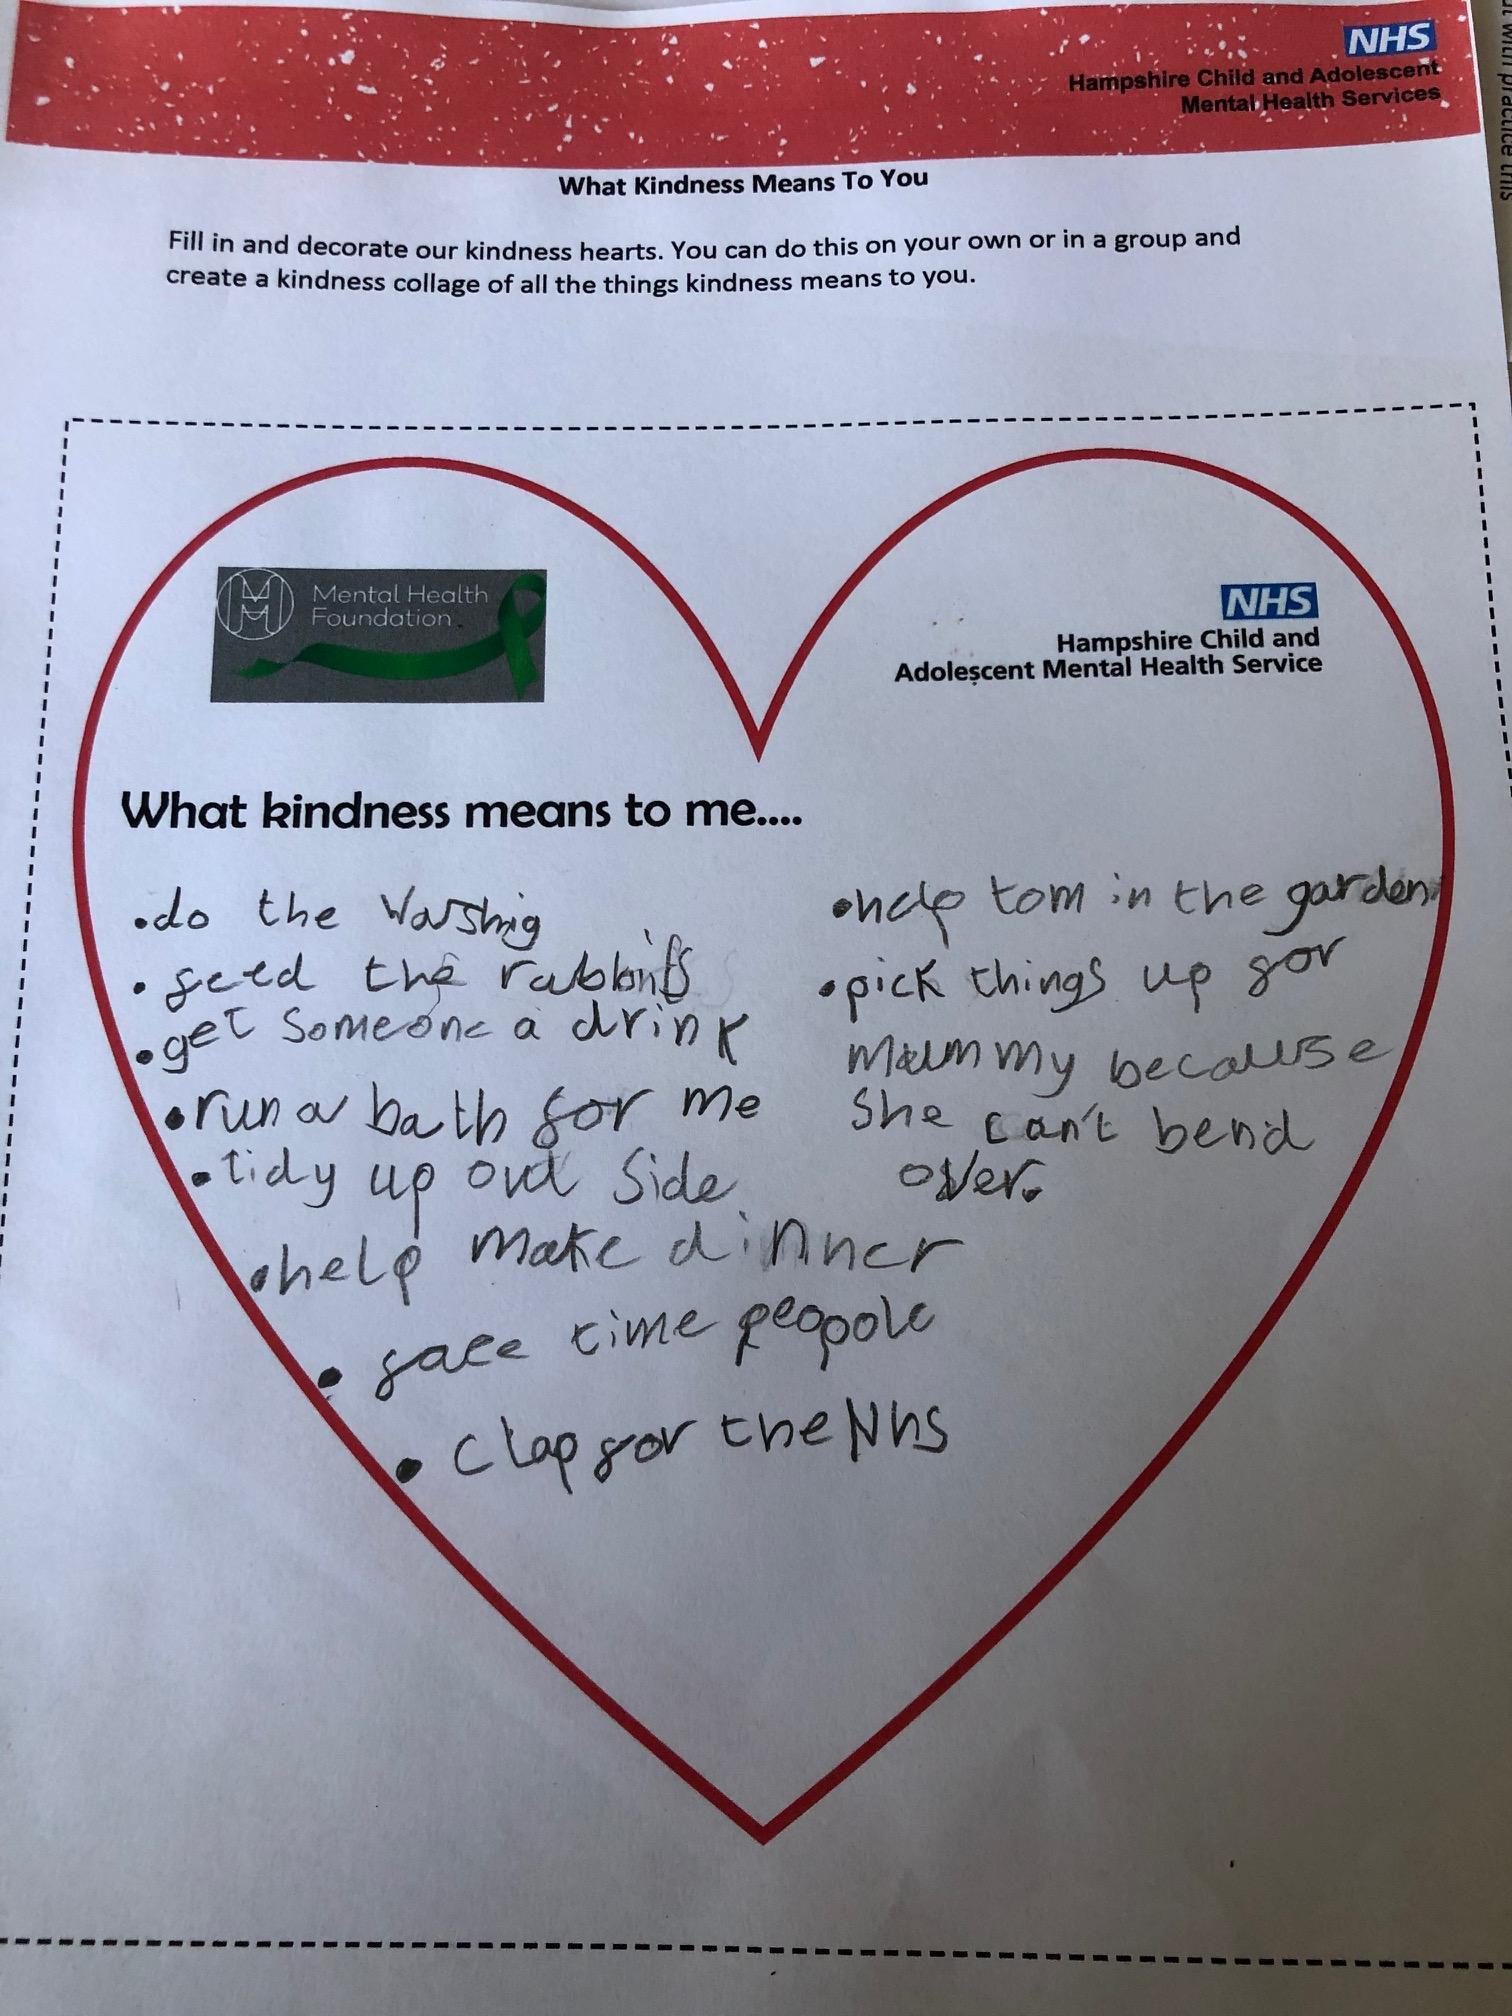 NHS
Hampshire Child and Adolescent
Mental Health Services
What Kindness Means To You
Fill in and decorate our kindness hearts. You can do this on your own or in a group and
create a kindness collage of all the things kindness means to you.
Mental Health
Foundation
NHS
Hampshire Child and
Adolescent Mental Health Service
What kindness means to me....
•do the Washig
• feed the rabbits
•get Someone a drink
•run a bath for me
•tidy up out Side
•help make dinner
• face time peopole
• Clap for the Nhs
•help tom in the garden
•pick things up for
Mummy because
She can't bend
over.